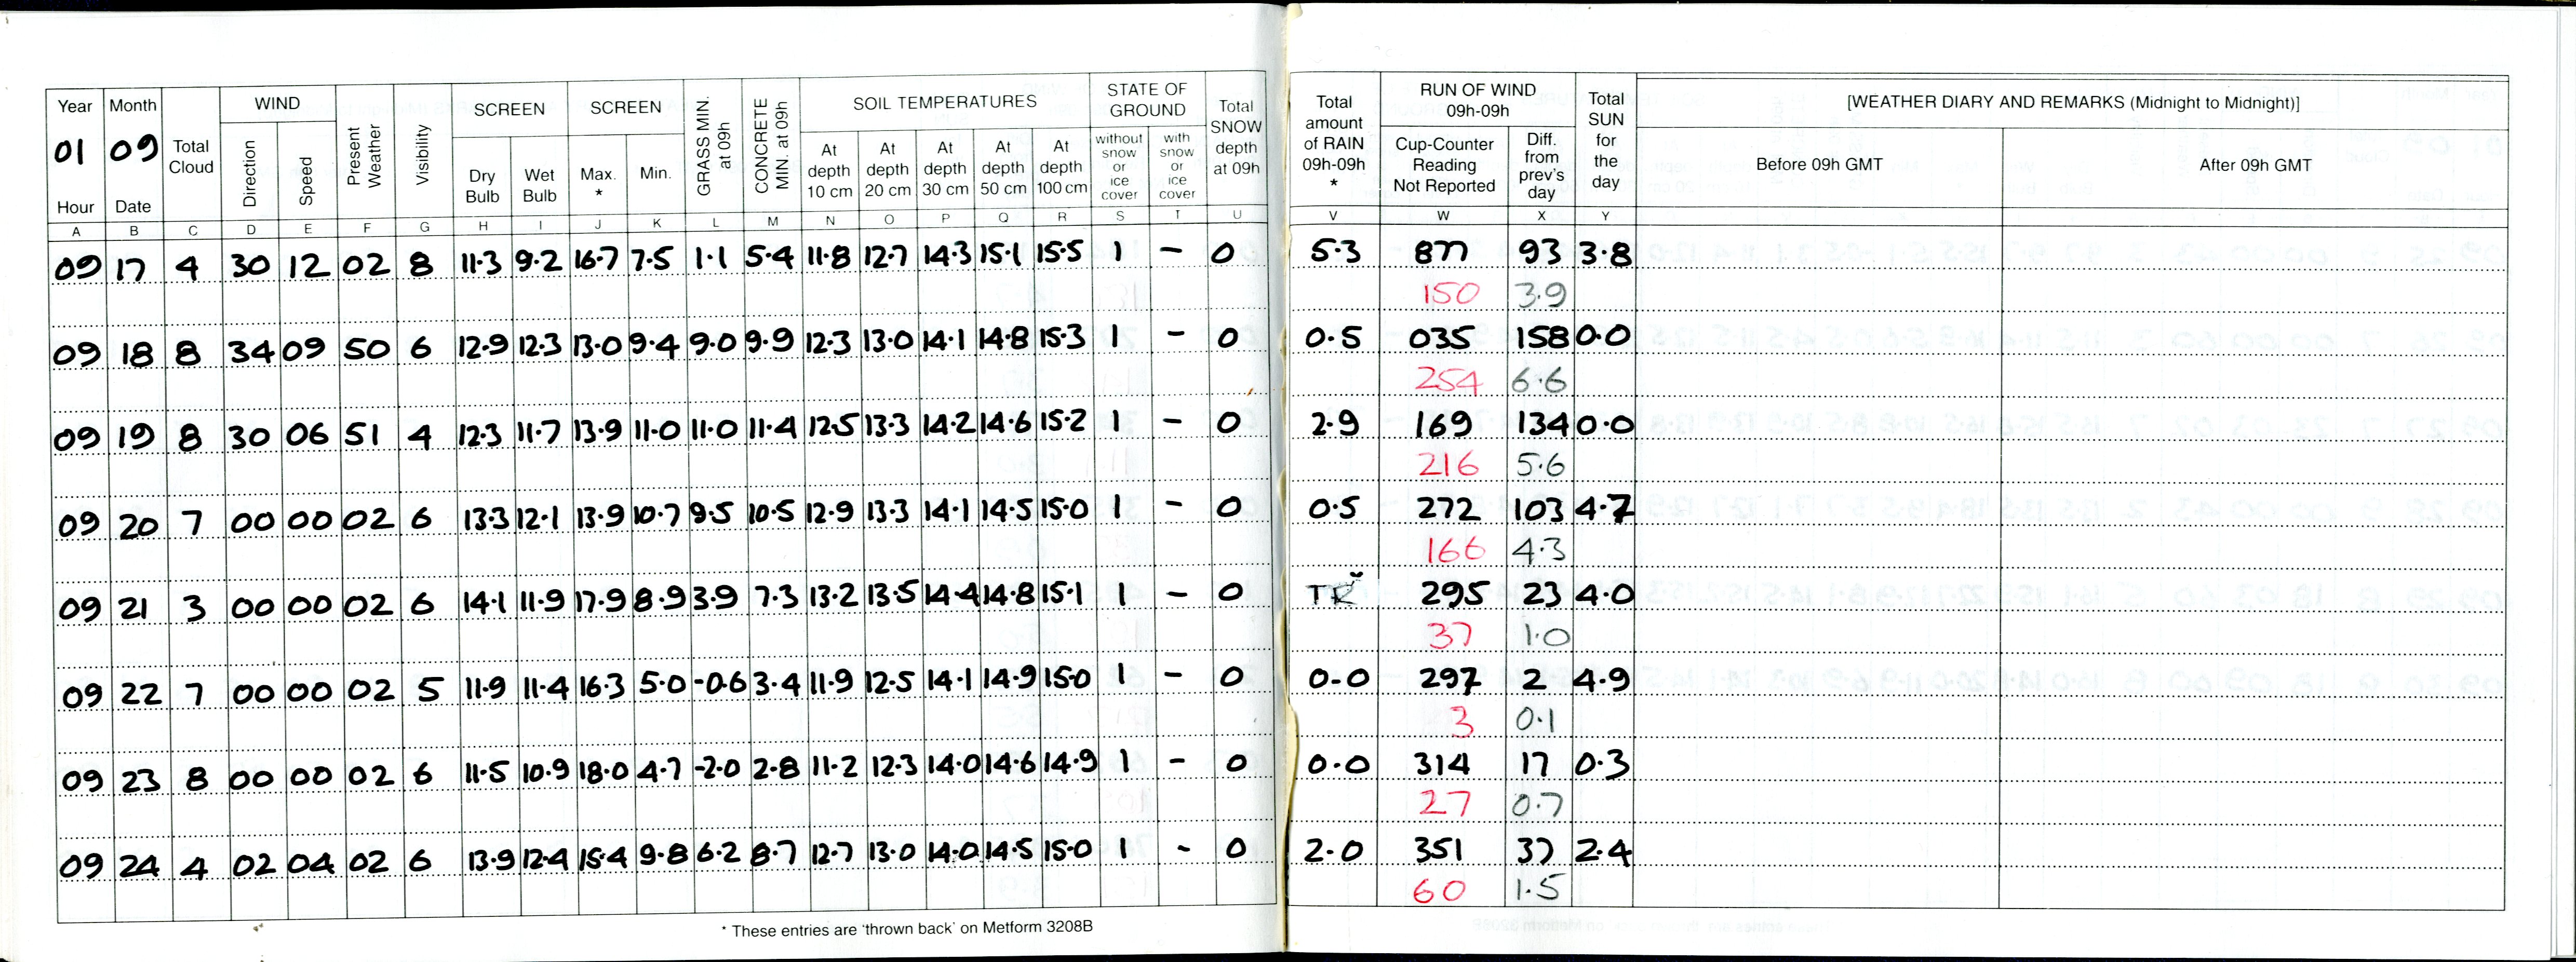 Year Month Total Cloud WIND Present Weather Visibility SCREEN SCREEN GRASS MIN. at 09h CONCRETE MIN. at 09h SOIL TEMPERATURES STATE OF GROUND Total SNOW depth at 09h Total amount of RAIN 09h-09h * RUN OF WIND 09h-09h Total SUN for the day [WEATHER DIARY AND REMARKS (Midnight to Midnight)]
01 09 Direction Speed Dry Bulb Wet Bulb Max. * Min. At depth 10 cm At depth 20 cm At depth 30 cm At depth 50 cm At depth 100 cm without snow or ice cover with snow or ice cover Cup-Counter Reading Not Reported Diff. from prev's day Before 09h GMT After 09h GMT
Hour Date
A B C D E F G H I J K L M N O P Q R S T U V W X Y
09 17 4 30 12 02 8 11.3 9.2 16.7 7.5 1.1 5.4 11.8 12.7 14.3 15.1 15.5 1 - 0 5.3 877 93 3.8
150 3.9
09 18 8 34 09 50 6 12.9 12.3 13.0 9.4 9.0 9.9 12.3 13.0 14.1 14.8 15.3 1 - 0 0.5 035 158 0.0
254 6.6
09 19 8 30 06 51 4 12.3 11.7 13.9 11.0 11.0 11.4 12.5 13.3 14.2 14.6 15.2 1 - 0 2.9 169 134 0.0
216 5.6
09 20 7 00 00 02 6 13.3 12.1 13.9 10.7 9.5 10.5 12.9 13.3 14.1 14.5 15.0 1 - 0 0.5 272 103 4.7
166 4.3
09 21 3 00 00 02 6 14.1 11.9 17.9 8.9 3.9 7.3 13.2 13.5 14.4 14.8 15.1 1 - 0 TR 295 23 4.0
37 1.0
09 22 7 00 00 02 5 11.9 11.4 16.3 5.0 -0.6 3.4 11.9 12.5 14.1 14.9 15.0 1 - 0 0.0 297 2 4.9
3 0.1
09 23 8 00 00 02 6 11.5 10.9 18.0 4.7 -2.0 2.8 11.2 12.3 14.0 14.6 14.9 1 - 0 0.0 314 17 0.3
27 0.7
09 24 4 02 04 02 6 13.9 12.4 15.4 9.8 6.2 8.7 12.7 13.0 14.0 14.5 15.0 1 - 0 2.0 351 37 2.4
60 1.5
* These entries are 'thrown back' on Metform 3208B